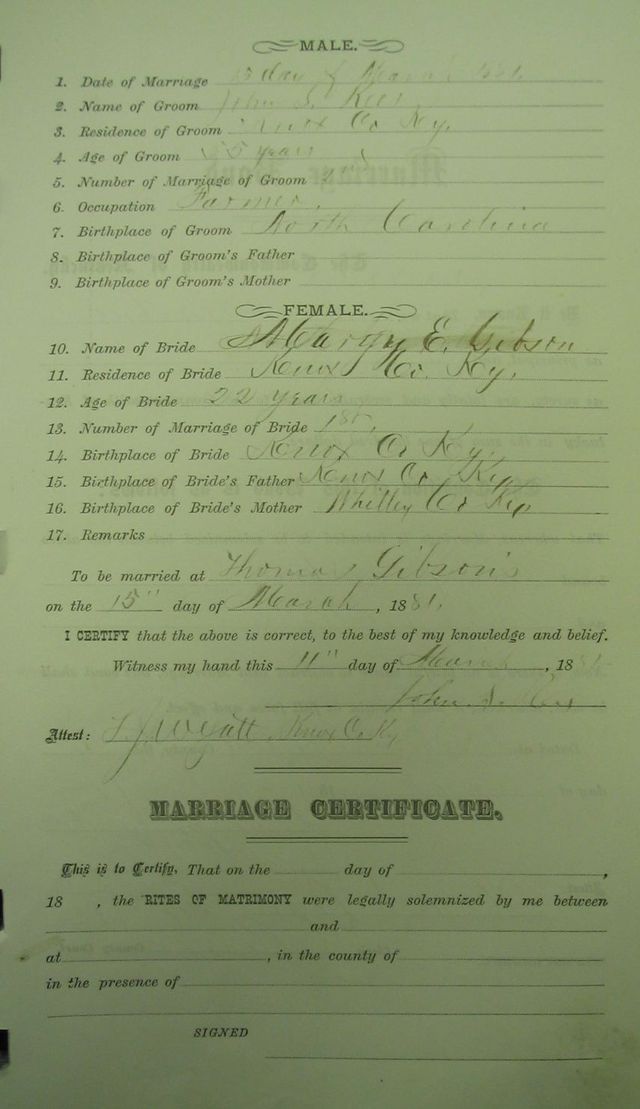 MALE.
1. Date of Marriage 15 day of March 1881.
2. Name of Groom John S.
3. Residence of Groom Knox Co Ky.
4. Age of Groom years
5. Number of Marriage of Groom
6. Occupation Farmer.
7. Birthplace of Groom North Carolina
8. Birthplace of Groom's Father
9. Birthplace of Groom's Mother
FEMALE.
10. Name of Bride E. Gibson
11. Residence of Bride Knox Co. Ky.
12. Age of Bride 22 years
13. Number of Marriage of Bride 1st.
14. Birthplace of Bride Knox Co Ky.
15. Birthplace of Bride's Father Knox Co Ky
16. Birthplace of Bride's Mother Whitley Co Ky
17. Remarks
To be married at Thomas Gibson's
on the 15" day of March, 1881.
I CERTIFY that the above is correct, to the best of my knowledge and belief.
Witness my hand this 11" day of March, 1881
John S.
Attest: Wyatt, Knox C. Ky
MARRIAGE CERTIFICATE.
This is to Certify, That on the day of ,
18 , the RITES OF MATRIMONY were legally solemnized by me between
and
at , in the county of
in the presence of
SIGNED